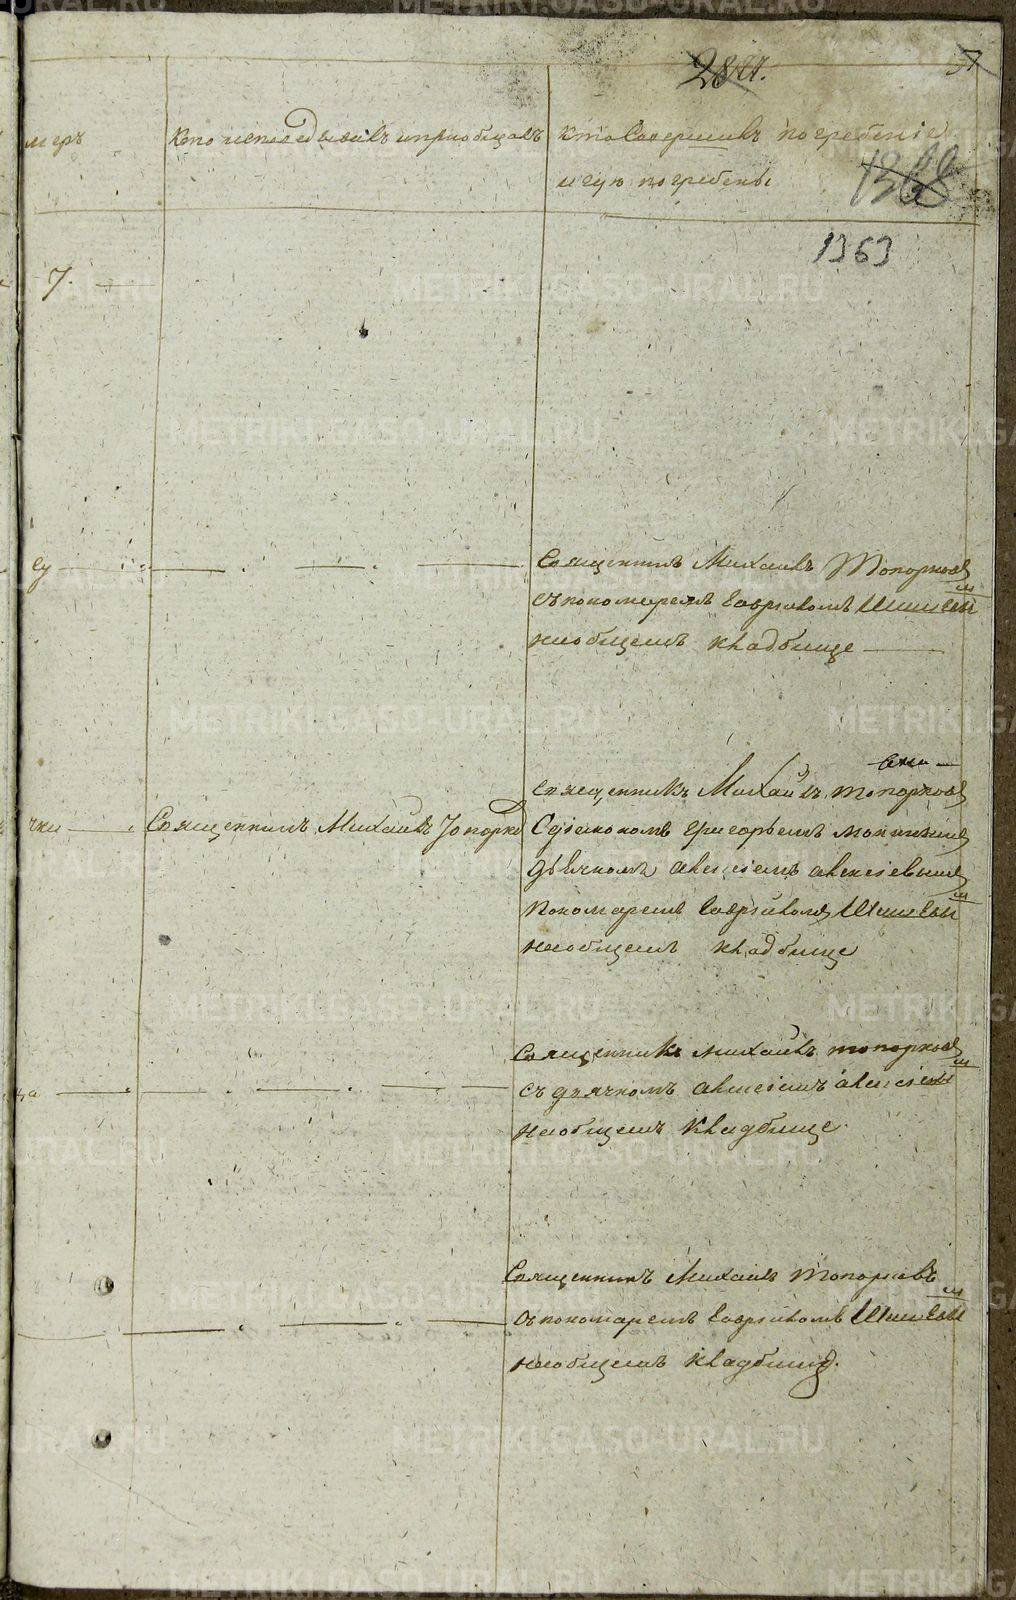 284.
57
меръ
кто исповедывалъ и приобщалъ
кто Совершилъ погребение
и гдѣ погребены
1368
1363
7.
Священникъ Михаилъ Топорковъ
съ пономаремъ Гаврииломъ Шишевым
на общемъ кладбище
Священникъ Михаилъ Топорковъ
чки
Священникъ Михаилъ Топорков
С діакономъ Григорьемъ
дьячкомъ Алексіемъ Алексіевымъ
Пономаремъ Гаврииломъ Шишевым
на общемъ кладбище
Священникъ Михаилъ Топорковъ
ца
съ дьячкомъ Алексіемъ Алексіевым
на общемъ кладбище
Священникъ Михаилъ Топорковъ
съ пономаремъ Гаврииломъ Шишевым
на общемъ кладбище.
METRIKI.GASO-URAL.RU